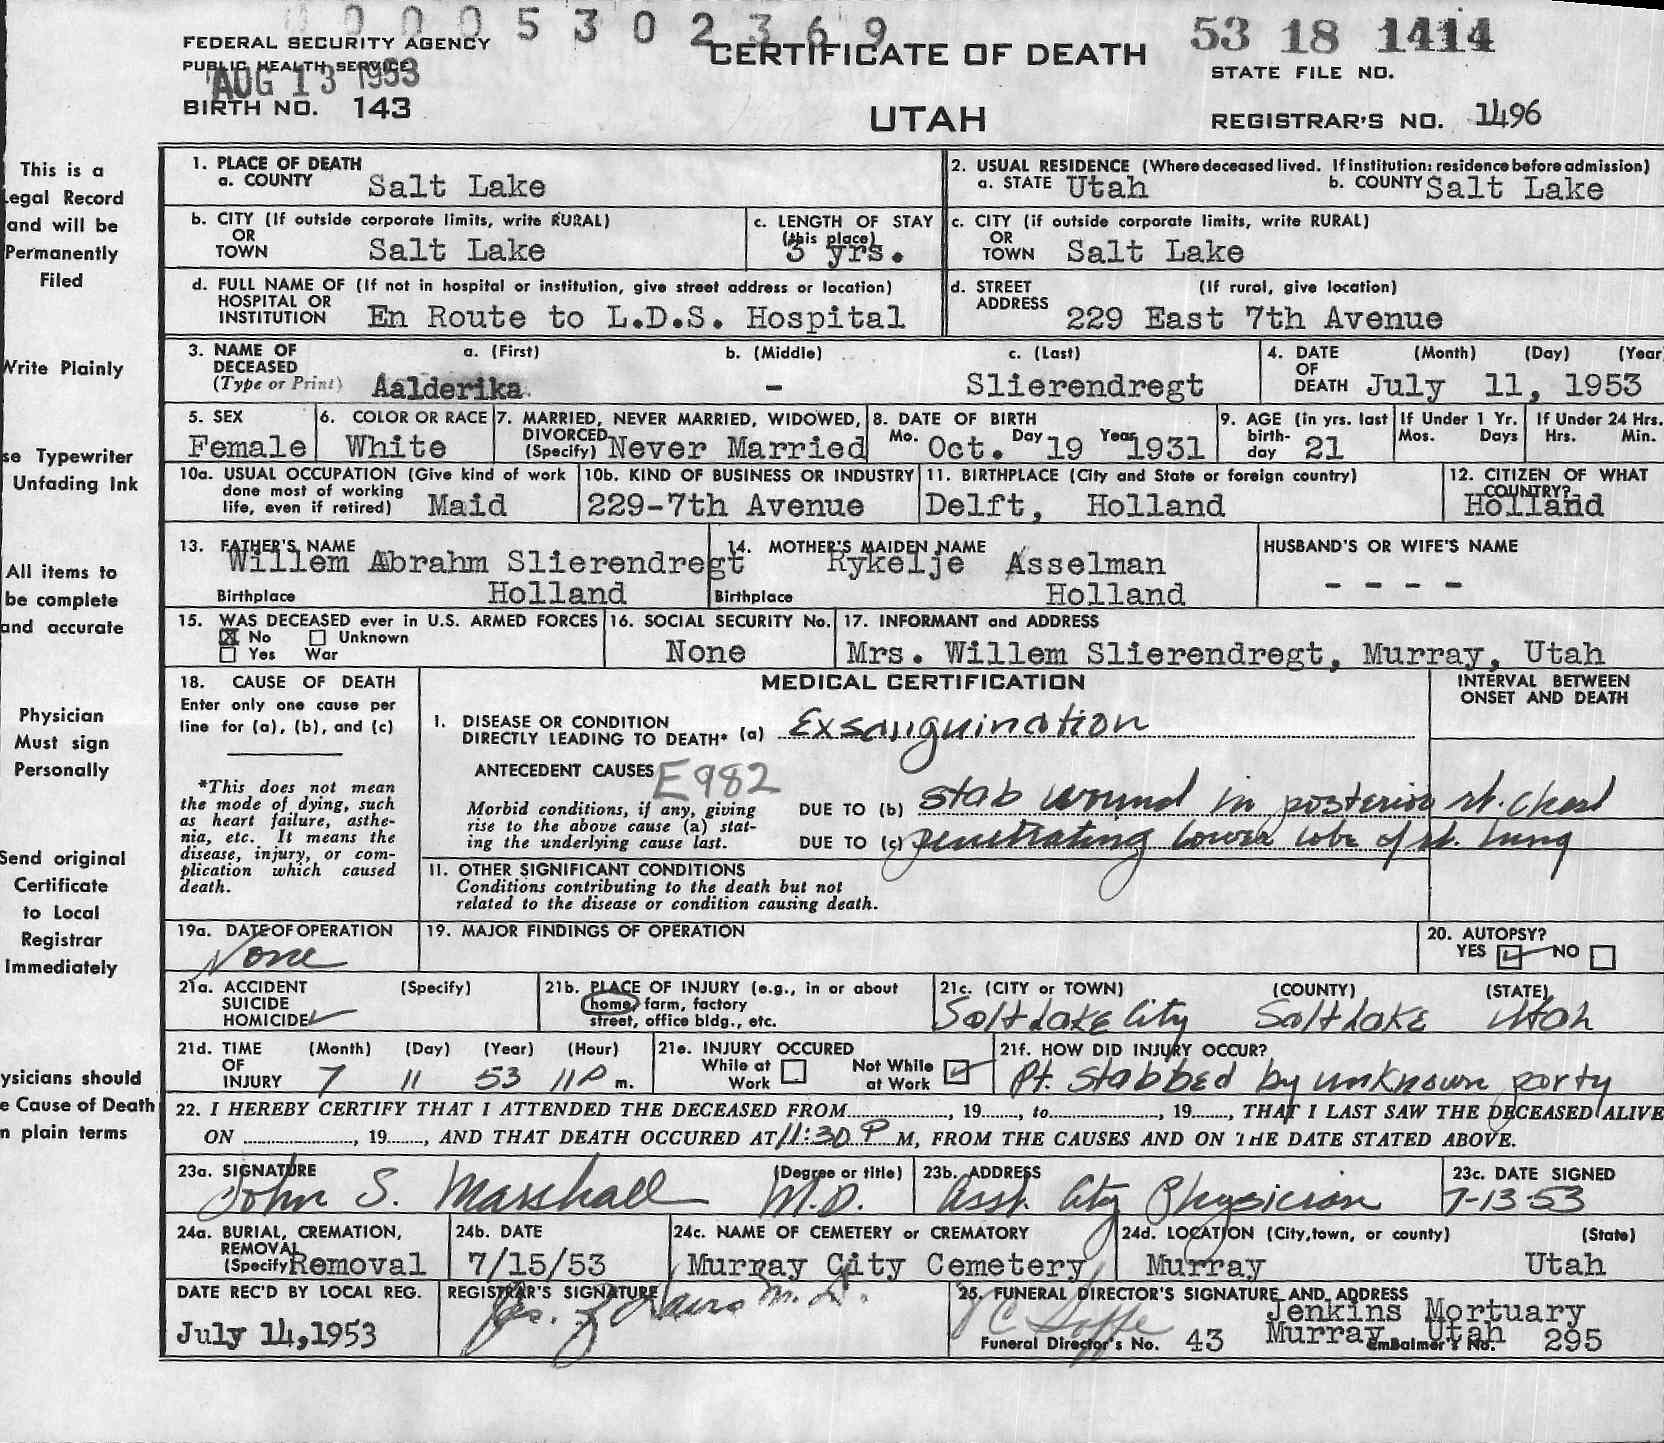 00005302369
53 18 1414
FEDERAL SECURITY AGENCY
PUBLIC HEALTH SERVICE
AUG 13 1953
CERTIFICATE OF DEATH
STATE FILE NO.
BIRTH NO. 143
UTAH
REGISTRAR'S NO. 1496
This is a
Legal Record
and will be
Permanently
Filed
Write Plainly
se Typewriter
Unfading Ink
All items to
be complete
and accurate
Physician
Must sign
Personally
Send original
Certificate
to Local
Registrar
Immediately
ysicians should
e Cause of Death
n plain terms
1. PLACE OF DEATH
a. COUNTY Salt Lake
2. USUAL RESIDENCE (Where deceased lived. If institution: residence before admission)
a. STATE Utah b. COUNTY Salt Lake
b. CITY (If outside corporate limits, write RURAL)
OR
TOWN Salt Lake
c. LENGTH OF STAY
(this place)
3 yrs.
c. CITY (if outside corporate limits, write RURAL)
OR
TOWN Salt Lake
d. FULL NAME OF (If not in hospital or institution, give street address or location)
HOSPITAL OR
INSTITUTION En Route to L.D.S. Hospital
d. STREET (If rural, give location)
ADDRESS 229 East 7th Avenue
3. NAME OF a. (First) b. (Middle) c. (Last)
DECEASED
(Type or Print) Aalderika - Slierendregt
4. DATE (Month) (Day) (Year
OF
DEATH July 11, 1953
5. SEX
Female
6. COLOR OR RACE
White
7. MARRIED, NEVER MARRIED, WIDOWED,
DIVORCED
(Specify) Never Married
8. DATE OF BIRTH
Mo. Oct. Day 19 Year 1931
9. AGE (in yrs. last
birth-
day 21
If Under 1 Yr.
Mos. Days
If Under 24 Hrs.
Hrs. Min.
10a. USUAL OCCUPATION (Give kind of work
done most of working
life, even if retired) Maid
10b. KIND OF BUSINESS OR INDUSTRY
229-7th Avenue
11. BIRTHPLACE (City and State or foreign country)
Delft, Holland
12. CITIZEN OF WHAT
COUNTRY?
Holland
13. FATHER'S NAME
Willem Abrahm Slierendregt
Birthplace Holland
14. MOTHER'S MAIDEN NAME
Rykelje Asselman
Birthplace Holland
HUSBAND'S OR WIFE'S NAME
- - - -
15. WAS DECEASED ever in U.S. ARMED FORCES
No Unknown
Yes War
16. SOCIAL SECURITY No.
None
17. INFORMANT and ADDRESS
Mrs. Willem Slierendregt, Murray, Utah
18. CAUSE OF DEATH
Enter only one cause per
line for (a), (b), and (c)
*This does not mean
the mode of dying, such
as heart failure, asthe-
nia, etc. It means the
disease, injury, or com-
plication which caused
death.
MEDICAL CERTIFICATION
INTERVAL BETWEEN
ONSET AND DEATH
I. DISEASE OR CONDITION
DIRECTLY LEADING TO DEATH* (a) Exsanguination
ANTECEDENT CAUSES E982
Morbid conditions, if any, giving
rise to the above cause (a) stat-
ing the underlying cause last.
DUE TO (b) stab wound in posterior rt. chest
DUE TO (c) penetrating lower lobe of rt. lung
11. OTHER SIGNIFICANT CONDITIONS
Conditions contributing to the death but not
related to the disease or condition causing death.
19a. DATE OF OPERATION
None
19. MAJOR FINDINGS OF OPERATION
20. AUTOPSY?
YES NO
21a. ACCIDENT (Specify)
SUICIDE
HOMICIDE
21b. PLACE OF INJURY (e.g., in or about
home, farm, factory
street, office bldg., etc.
21c. (CITY or TOWN) (COUNTY) (STATE)
Salt Lake City Salt Lake Utah
21d. TIME (Month) (Day) (Year) (Hour)
OF
INJURY 7 11 53 11 P m.
21e. INJURY OCCURED
While at Not While
Work at Work
21f. HOW DID INJURY OCCUR?
Pt. stabbed by unknown party
22. I HEREBY CERTIFY THAT I ATTENDED THE DECEASED FROM............, 19......, to............, 19......, THAT I LAST SAW THE DECEASED ALIVE
ON ............, 19......, AND THAT DEATH OCCURED AT 11:30 P M, FROM THE CAUSES AND ON THE DATE STATED ABOVE.
23a. SIGNATURE (Degree or title)
John S. Marshall M.D.
23b. ADDRESS
Asst. City Physician
23c. DATE SIGNED
7-13-53
24a. BURIAL, CREMATION,
REMOVAL
(Specify Removal
24b. DATE
7/15/53
24c. NAME OF CEMETERY or CREMATORY
Murray City Cemetery
24d. LOCATION (City, town, or county) (State)
Murray Utah
DATE REC'D BY LOCAL REG.
July 14, 1953
REGISTRAR'S SIGNATURE
M. D.
25. FUNERAL DIRECTOR'S SIGNATURE AND ADDRESS
Jenkins Mortuary
Murray Utah
Funeral Director's No. 43 Embalmer's No. 295